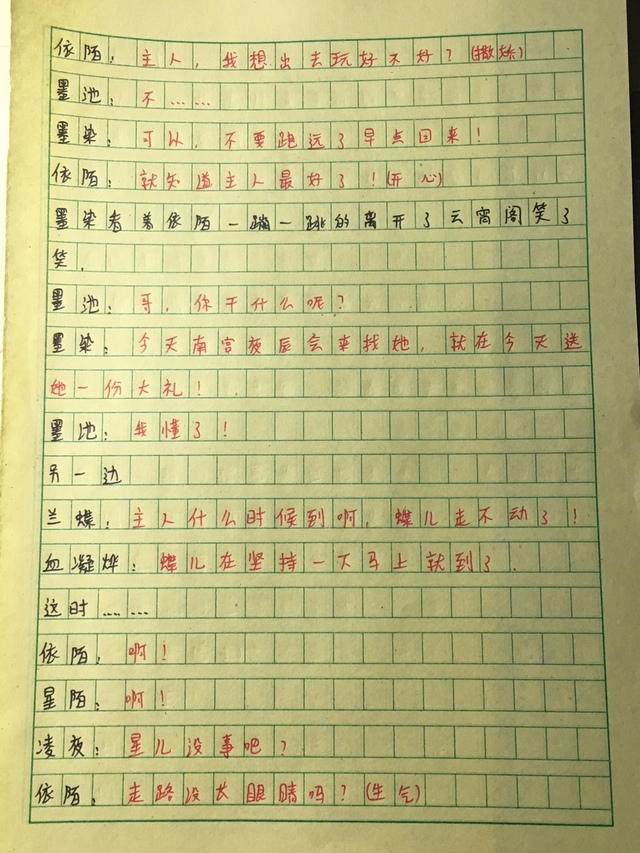 依陌：主人，我想出去玩好不好？(撒娇)
墨池：不……
墨染：可以，不要跑远了早点回来！
依陌：就知道主人最好了！(开心)
墨染看着依陌一蹦一跳的离开了云宵阁笑了
笑．
墨池：哥，你干什么呢？
墨染：今天南宫夜辰会来找她，就在今天送
她一份大礼！
墨池：我懂了！
另一边
兰蝶：主人什么时候到啊，蝶儿走不动了！
血凝烨：蝶儿在坚持一下马上就到了．
这时……
依陌：啊！
星陌：啊！
凌夜：星儿没事吧？
依陌：走路没长眼睛吗？(生气)